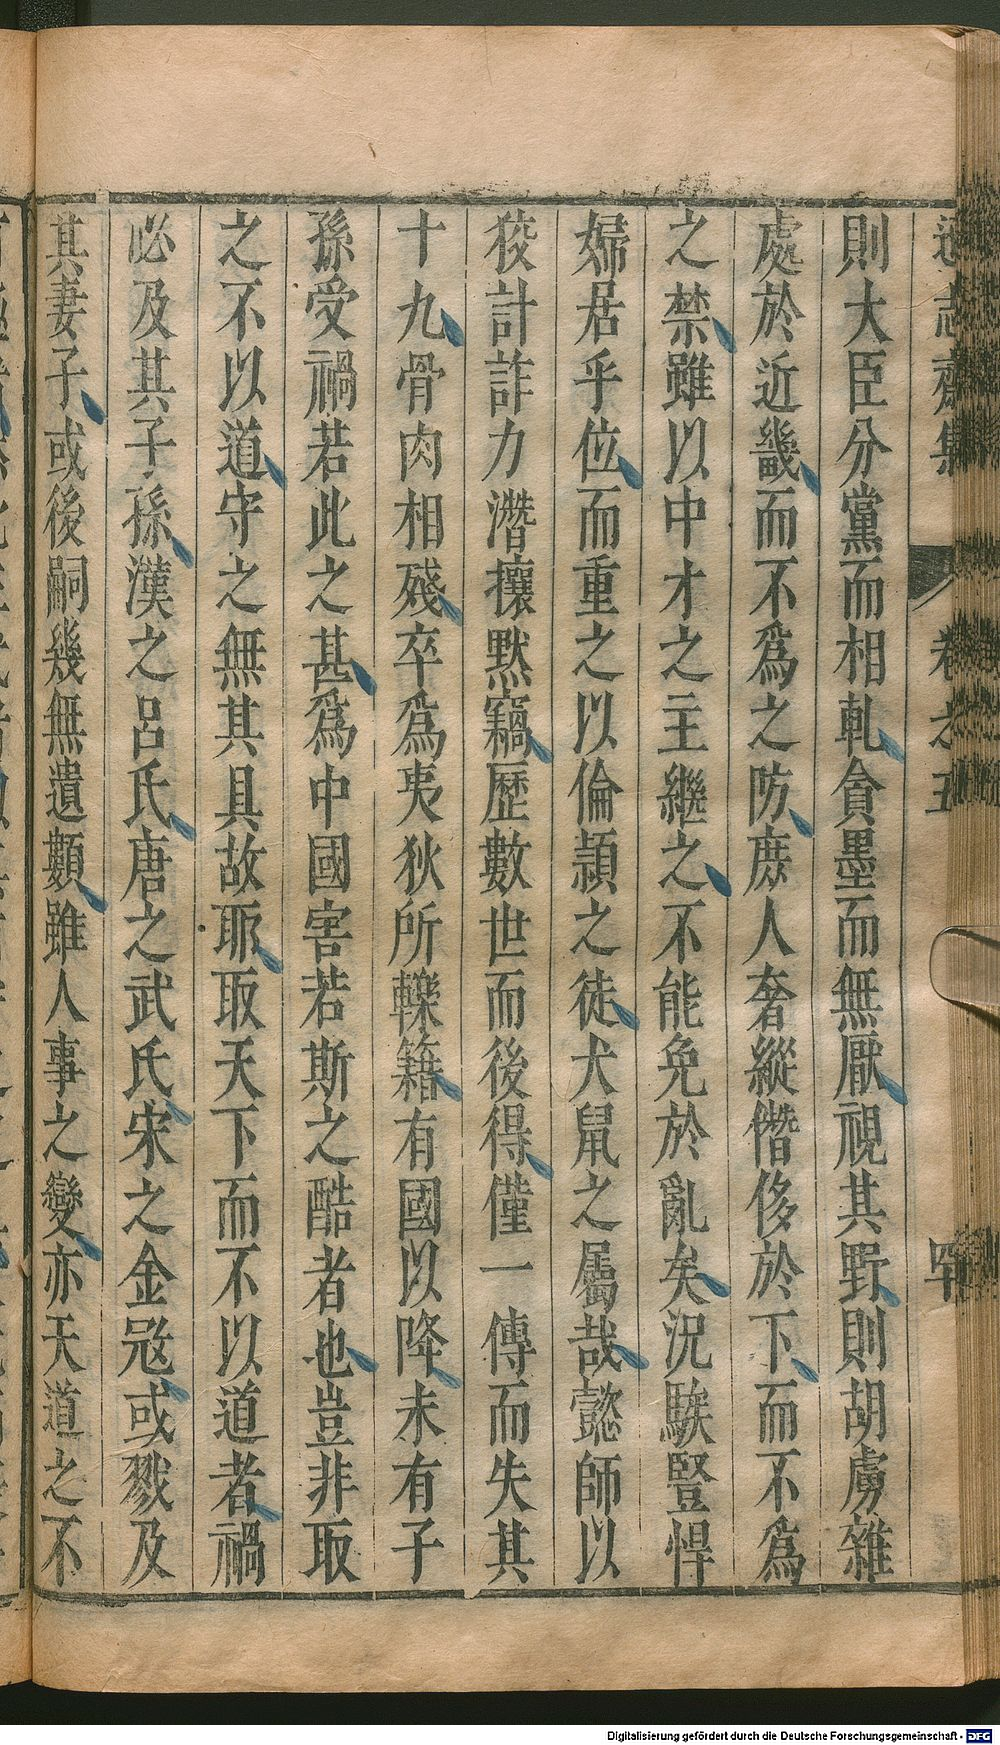 遜志齋集 卷之五
則大臣分黨而相軋貪墨而無厭視其野則胡虜雜
處於近畿而不爲之防庶人奢縱僭侈於下而不爲
之禁雖以中才之主繼之不能免於亂矣況騃豎悍
婦居乎位而重之以倫頴之徒犬鼠之屬哉懿師以
狡計詐力潛攘默竊歷數世而後得僅一傳而失其
十九骨肉相殘卒爲夷狄所轢籍有國以降未有子
孫受禍若此之甚爲中國害若斯之酷者也豈非取
之不以道守之無其具故耶取天下而不以道者禍
必及其子孫漢之呂氏唐之武氏宋之金冦或戮及
其妻子或後嗣幾無遺類雖人事之變亦天道之不
Digitalisierung gefördert durch die Deutsche Forschungsgemeinschaft - DFG